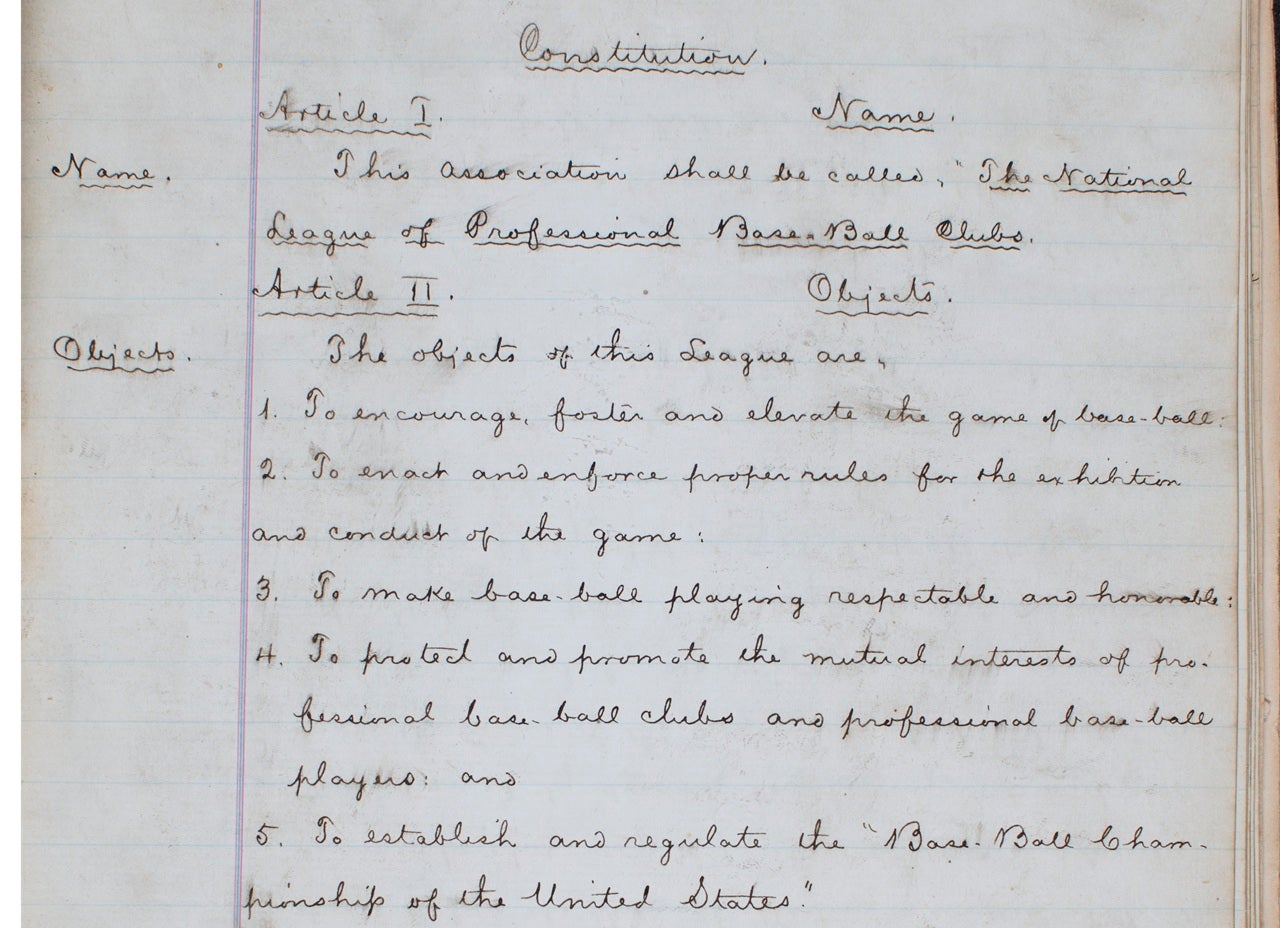 Constitution.
Article I. Name.
Name. This association shall be called, "The National
League of Professional Base-Ball Clubs.
Article II. Objects.
Objects. The objects of this League are,
1. To encourage, foster and elevate the game of base-ball:
2. To enact and enforce proper rules for the exhibition
and conduct of the game:
3. To make base-ball playing respectable and honorable:
4. To protect and promote the mutual interests of pro-
fessional base-ball clubs and professional base-ball
players: and
5. To establish and regulate the "Base-Ball Cham-
pionship of the United States."